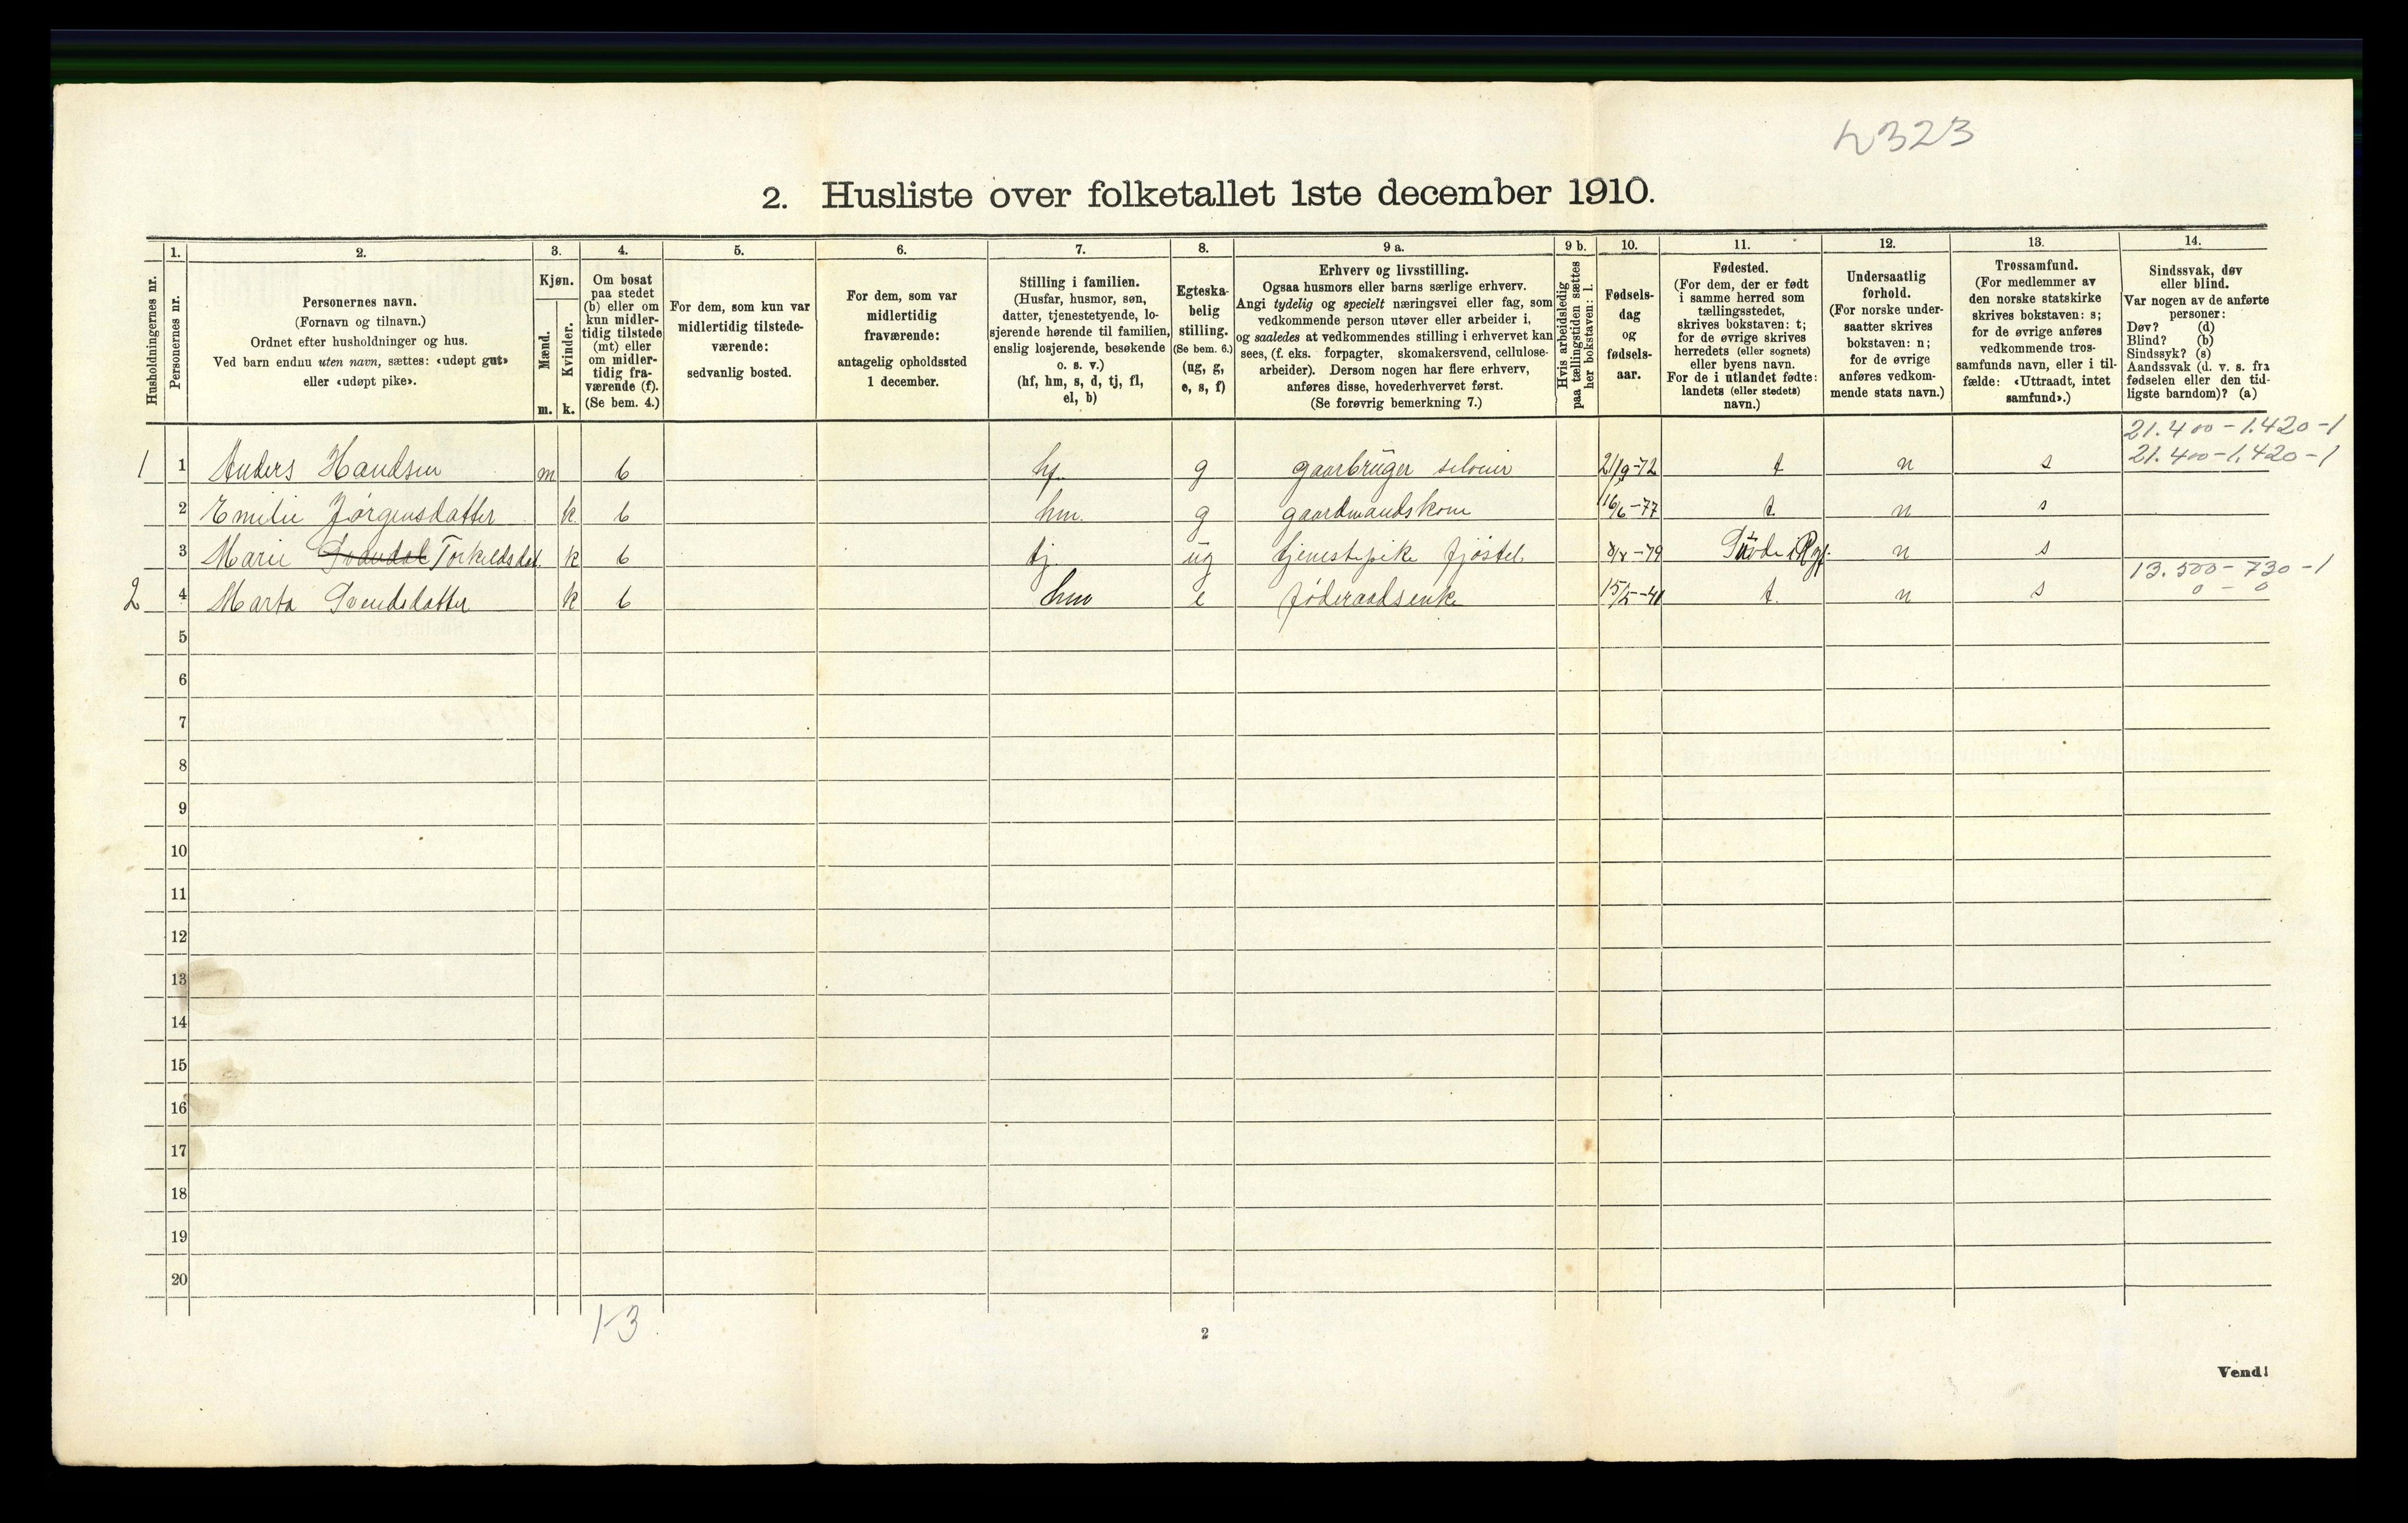 2323
2. Husliste over folketallet 1ste december 1910.
Husholdningernes nr.
1.
Personernes nr.
2.
Personernes navn.
(Fornavn og tilnavn.)
Ordnet efter husholdninger og hus.
Ved barn endnu uten navn, sættes: «udøpt gut»
eller «udøpt pike».
3.
Kjøn.
Mænd.
m.
Kvinder.
k.
4.
Om bosat
paa stedet
(b) eller om
kun midler-
tidig tilstede
(mt) eller
om midler-
tidig fra-
værende (f).
(Se bem. 4.)
5.
For dem, som kun var
midlertidig tilstede-
værende:
sedvanlig bosted.
6.
For dem, som var
midlertidig
fraværende:
antagelig opholdssted
1 december.
7.
Stilling i familien.
(Husfar, husmor, søn,
datter, tjenestetyende, lo-
sjerende hørende til familien,
enslig losjerende, besøkende
o. s. v.)
(hf, hm, s, d, tj, fl,
el, b)
8.
Egteska-
belig
stilling.
(Se bem. 6.)
(ug, g,
e, s, f)
9 a.
Erhverv og livsstilling.
Ogsaa husmors eller barns særlige erhverv.
Angi tydelig og specielt næringsvei eller fag, som
vedkommende person utøver eller arbeider i,
og saaledes at vedkommendes stilling i erhvervet kan
sees, (f. eks. forpagter, skomakersvend, cellulose-
arbeider). Dersom nogen har flere erhverv,
anføres disse, hovederhvervet først.
(Se forøvrig bemerkning 7.)
9 b.
Hvis arbeidsledig
paa tællingstiden sættes
her bokstaven: l.
10.
Fødsels-
dag
og
fødsels-
aar.
11.
Fødested.
(For dem, der er født
i samme herred som
tællingsstedet,
skrives bokstaven: t;
for de øvrige skrives
herredets (eller sognets)
eller byens navn.
For de i utlandet fødte:
landets (eller stedets)
navn.)
12.
Undersaatlig
forhold.
(For norske under-
saatter skrives
bokstaven: n;
for de øvrige
anføres vedkom-
mende stats navn.)
13.
Trossamfund.
(For medlemmer av
den norske statskirke
skrives bokstaven: s;
for de øvrige anføres
vedkommende tros-
samfunds navn, eller i til-
fælde: «Uttraadt, intet
samfund».)
14.
Sindssvak, døv
eller blind.
Var nogen av de anførte
personer:
Døv? (d)
Blind? (b)
Sindssyk? (s)
Aandssvak (d. v. s. fra
fødselen eller den tid-
ligste barndom)? (a)
21.400-1.420-1
1 1 Anders Handsen m b hf. g gaarbruger seloier 21/9-72 t n s 21.400-1.420-1
2 Emilie Jørgensdatter k b hm. g gaardmandskone 16/6-77 t n s
3 Marie Torkeldsdat. k b tj. ug tjenestepike fjøstel 8/8-79 n s
13.500-730-1
2 4 Marta Svendsdatter k b hm e føderaadsenke 15/5-41 t. n s 0 - 0
5
6
7
8
9
10
11
12
13
14
15
16
17
18
19
20
1-3
2
Vend!